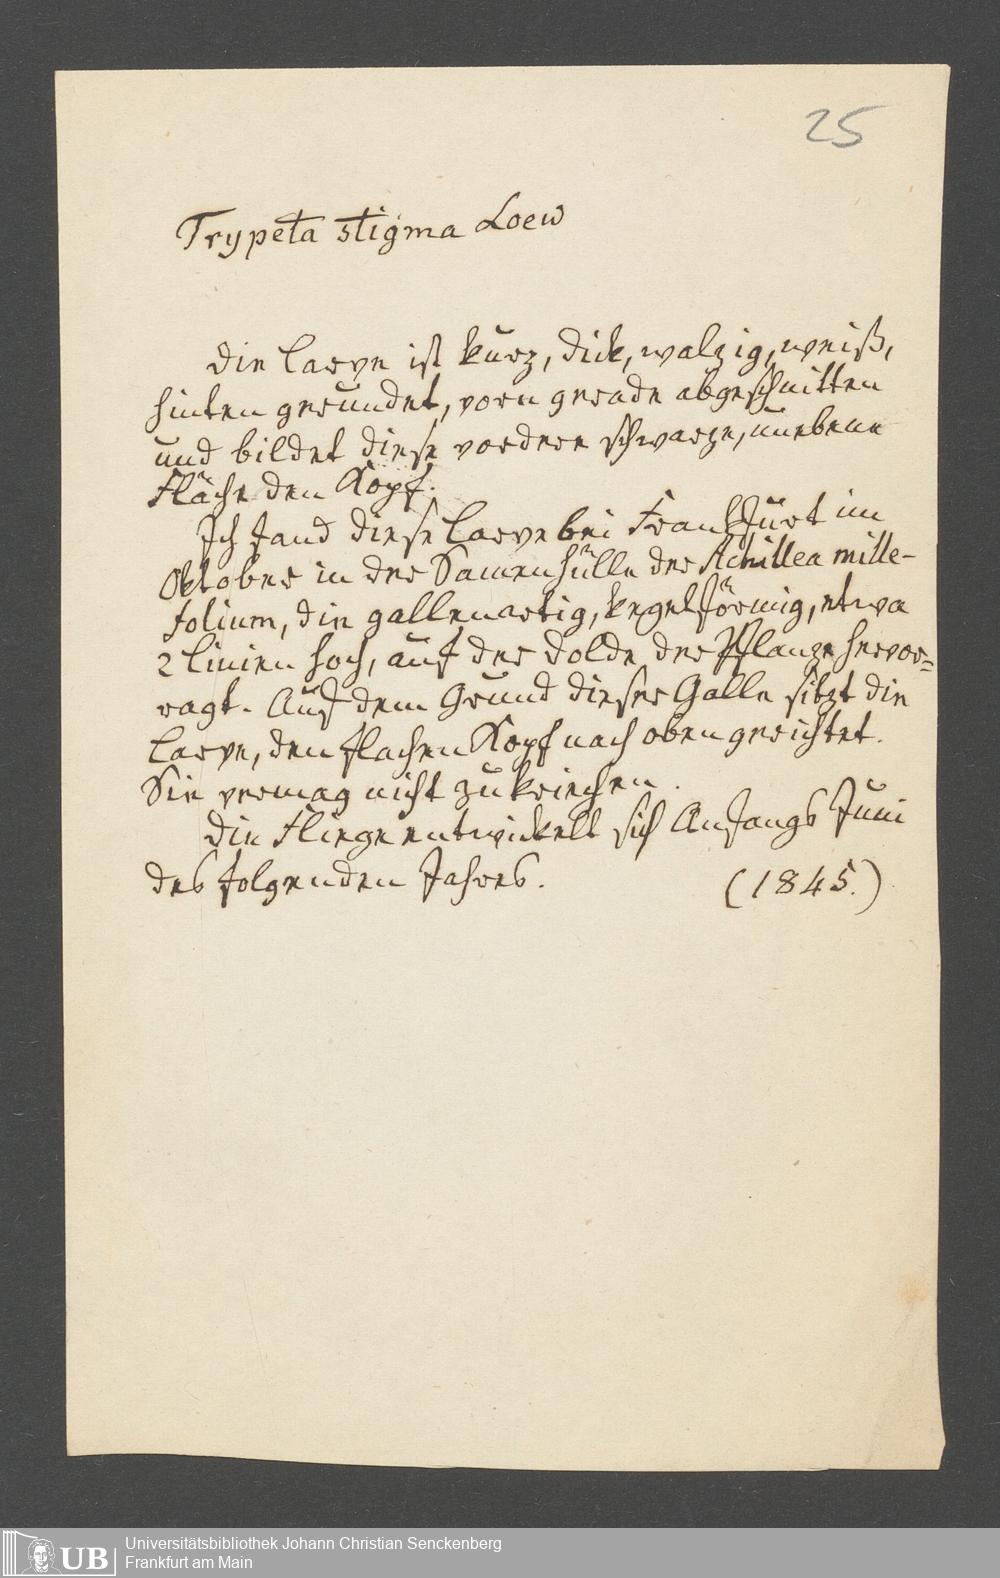 25
Trypeta stigma Loew
Die Larve ist kurz, dick, walzig, weiß,
hinten gerundet, vorn gerade abgeschnitten
und bildet diese vordere schwarze, unebene
Fläche den Kopf.
Ich fand diese Larve bei Frankfurt im
Oktober in der Samenhülle der Achillea mille-
folium, die gallenartig, kegelförmig, etwa
2 Linien hoch, auf der Dolde der Pflanze hervor=
ragt. Auf dem Grund dieser Galle sitzt die
Larve, den flachen Kopf nach oben gerichtet.
Sie vermag nicht zu kriechen.
Die Fliege entwickelt sich Anfangs Juni
des folgenden Jahres. (1845.)
UB
Universitätsbibliothek Johann Christian Senckenberg
Frankfurt am Main